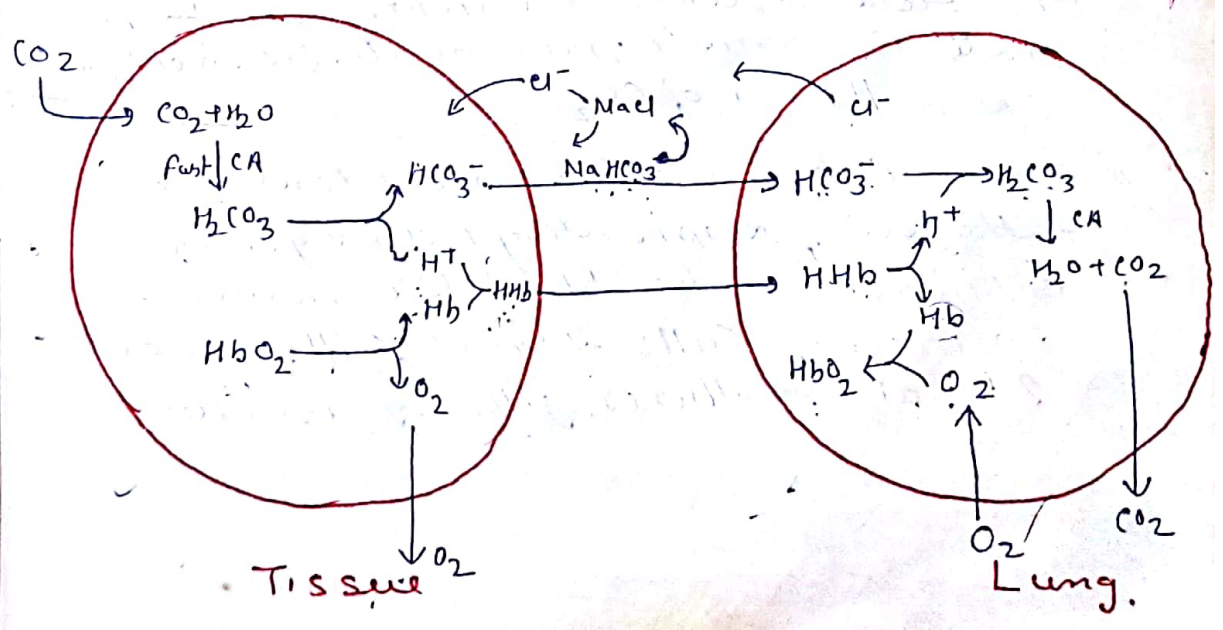 CO2
CO2+H2O
fast CA
H2CO3
HCO3-
H+
Hb
HHb
HbO2
O2
O2
Tissue
Cl-
NaCl
NaHCO3
Cl-
HCO3-
H2CO3
H+
CA
HHb
H2O+CO2
Hb
HbO2
O2
O2
CO2
Lung.